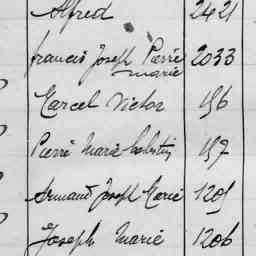 Alfred 2421
Francis Joseph Pierre 2033
Marie
Marcel Victor 196
Pierre Marie 197
Armand Joseph Marie 1205
Joseph Marie 1206